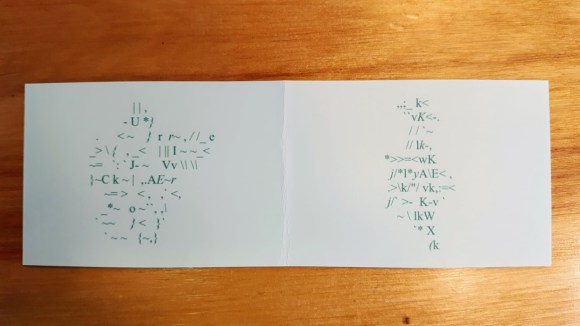 | | ,
- U * }
. < ~ } r r ~ , / / _ c
_ > \ { , _ < | | | I ~ ~ _ <
~ = ` : ` J - ~ V v \ | \ |
} ~ C k ~ | , . A E ~ r
~ = > < , ` < ,
_ * ~ o ~ ` ` , , \
` ~ ~ } < } `
` ~ ~ { ~ , }
, , ; _ k <
` ` v K < - .
/ / ` ~
/ / l k - ,
* > > = < w K
j / * I * y A \ E < ,
. > \ k / " / v k , : = <
j / ` > - K - v `
~ \ l k W
` * X
( k